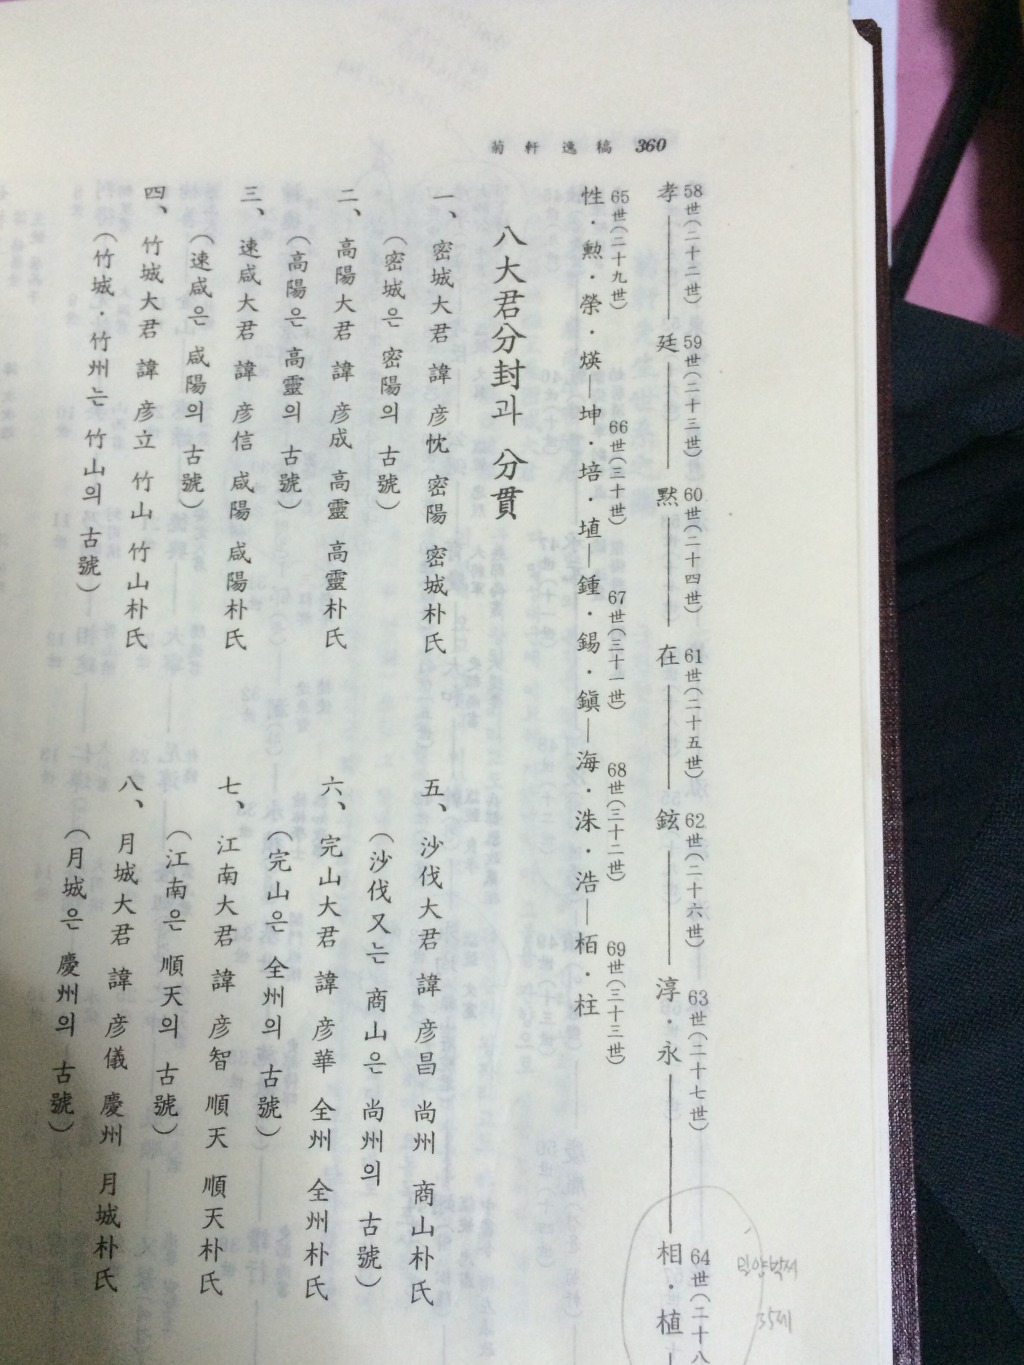 菊軒逸稿 360
58世(二十二世) 59世(二十三世) 60世(二十四世) 61世(二十五世) 62世(二十六世) 63世(二十七世) 64世(二十八
孝—廷—默—在—鉉—淳·永—相·植—
65世(二十九世) 66世(三十世) 67世(三十一世) 68世(三十二世) 69世(三十三世)
性·勲·榮·煐—坤·培·埴—鍾·錫·鎭—海·洙·浩—栢·柱
八大君分封과 分貫
一、密城大君 諱 彦忱 密陽 密城朴氏
(密城은 密陽의 古號)
二、高陽大君 諱 彦成 高靈 高靈朴氏
(高陽은 高靈의 古號)
三、速咸大君 諱 彦信 咸陽 咸陽朴氏
(速咸은 咸陽의 古號)
四、竹城大君 諱 彦立 竹山 竹山朴氏
(竹城·竹州는 竹山의 古號)
五、沙伐大君 諱 彦昌 尚州 商山朴氏
(沙伐又는 商山은 尚州의 古號)
六、完山大君 諱 彦華 全州 全州朴氏
(完山은 全州의 古號)
七、江南大君 諱 彦智 順天 順天朴氏
(江南은 順天의 古號)
八、月城大君 諱 彦儀 慶州 月城朴氏
(月城은 慶州의 古號)
밀양박씨
35세